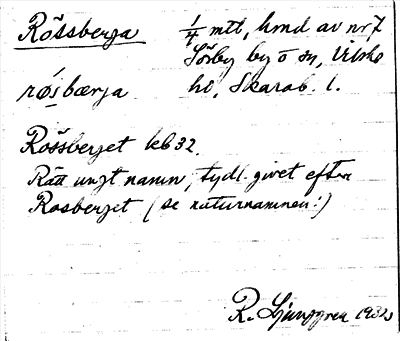 Rössberga 1/4 mtl, hmd av nr 7
Sörby by o sn, Vilske
røsbærja hd, Skarab. l.
Rössberget kb 32.
Rätt ungt namn, tydl. givet efter
Rosberget (se naturnamnen!)
R. Ljunggren 1932